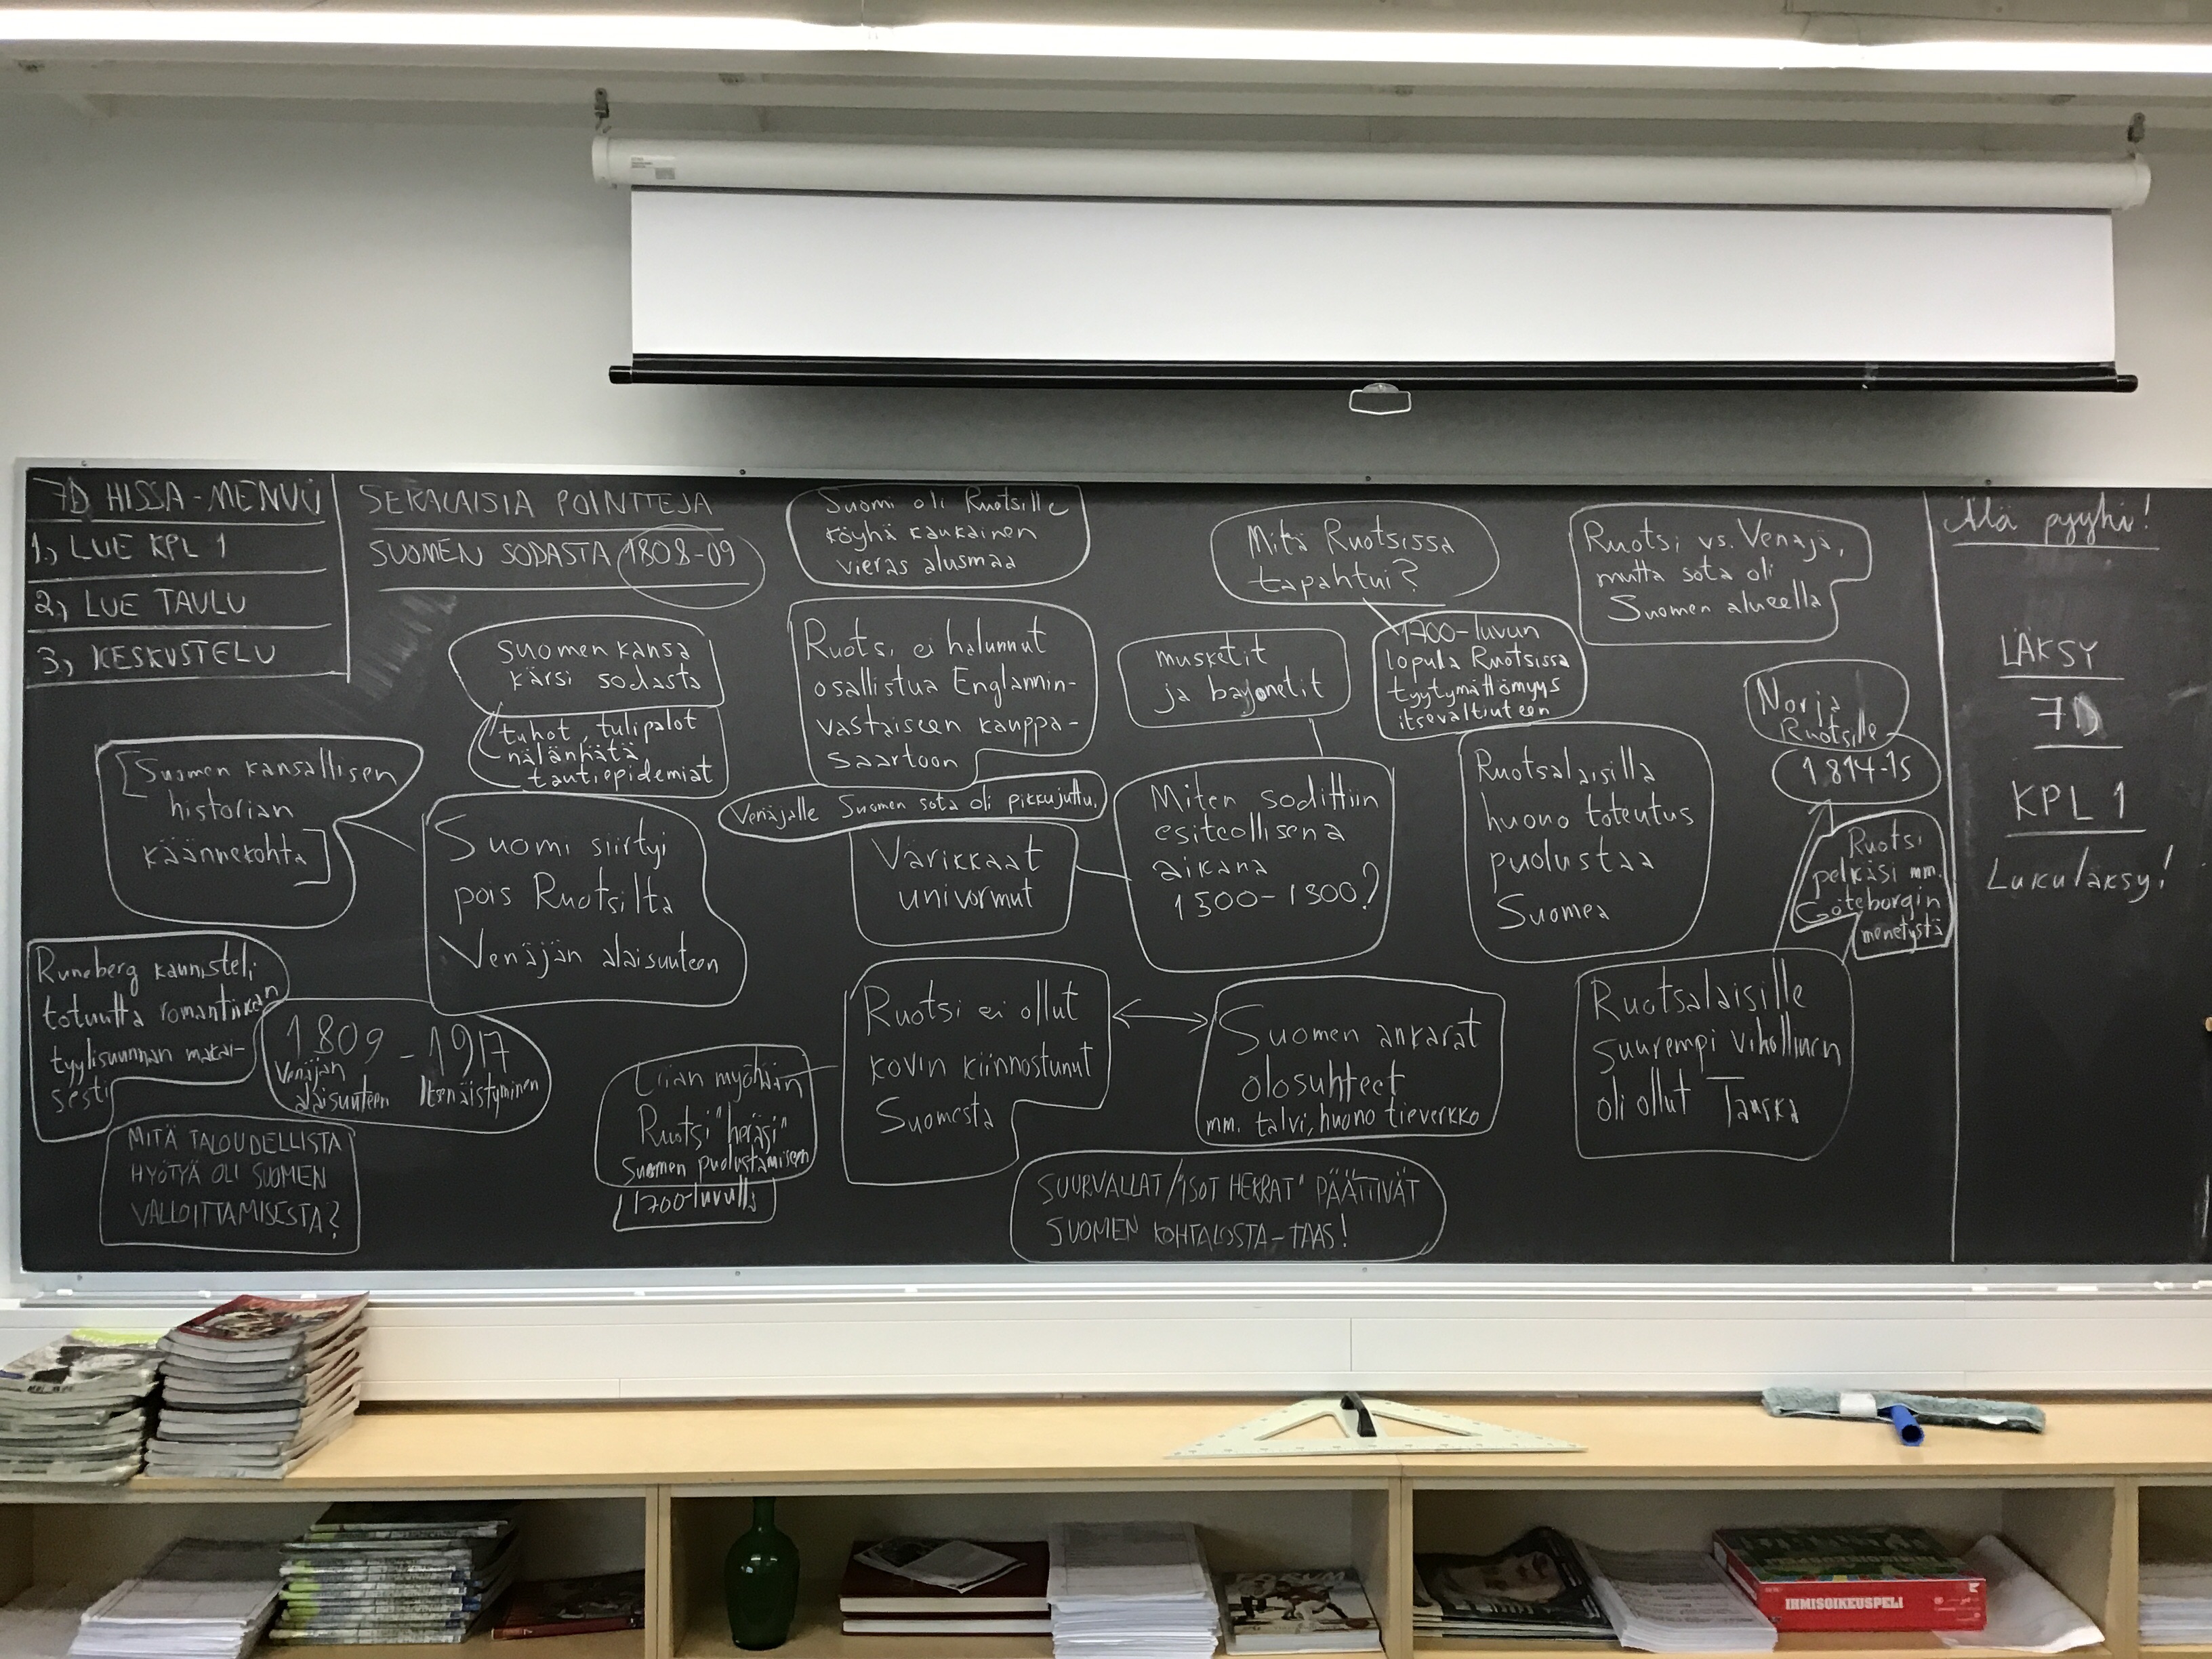 7D HISSA-MENUÜ
1., LUE KPL 1
2., LUE TAULU
3., KESKUSTELU
SEKALAISIA POINTTEJA
SUOMEN SODASTA 1808-09
Suomi oli Ruotsille
köyhä kaukainen
vieras alusmaa
Mitä Ruotsissa
tapahtui?
1700-luvun
lopulla Ruotsissa
tyytymättömyys
itsevaltiuteen
Ruotsi vs. Venäjä,
mutta sota oli
Suomen alueella
Suomen kansa
kärsi sodasta
tuhot, tulipalot
nälänhätä
tautiepidemiat
Ruotsi ei halunnut
osallistua Englannin-
vastaiseen kauppa-
saartoon
Venäjälle Suomen sota oli pikkujuttu.
musketit
ja bajonetit
Norja
Ruotsille
1814-15
[Suomen kansallisen
historian
käännekohta]
Suomi siirtyi
pois Ruotsilta
Venäjän alaisuuteen
Värikkäät
univormut
Miten sodittiin
esiteollisena
aikana
1500-1800?
Ruotsalaisilla
huono toteutus
puolustaa
Suomea
Ruotsi
pelkäsi mm.
Göteborgin
menetystä
Runeberg kaunisteli
totuutta romantiikan
tyylisuunnan mukai-
sesti
1809-1917
Venäjän
alaisuuteen
Itsenäistyminen
Liian myöhään
Ruotsi "heräsi"
Suomen puolustamiseen
1700-luvulla
Ruotsi ei ollut
kovin kiinnostunut
Suomesta
Suomen ankarat
olosuhteet
mm. talvi, huono tieverkko
Ruotsalaisille
suurempi vihollinen
oli ollut Tanska
MITÄ TALOUDELLISTA
HYÖTYÄ OLI SUOMEN
VALLOITTAMISESTA?
SUURVALLAT/"ISOT HERRAT" PÄÄTTIVÄT
SUOMEN KOHTALOSTA-TAAS!
Älä pyyhi!
LÄKSY
7D
KPL 1
Lukuläksy!
FORUM
IHMISOIKEUSPELI